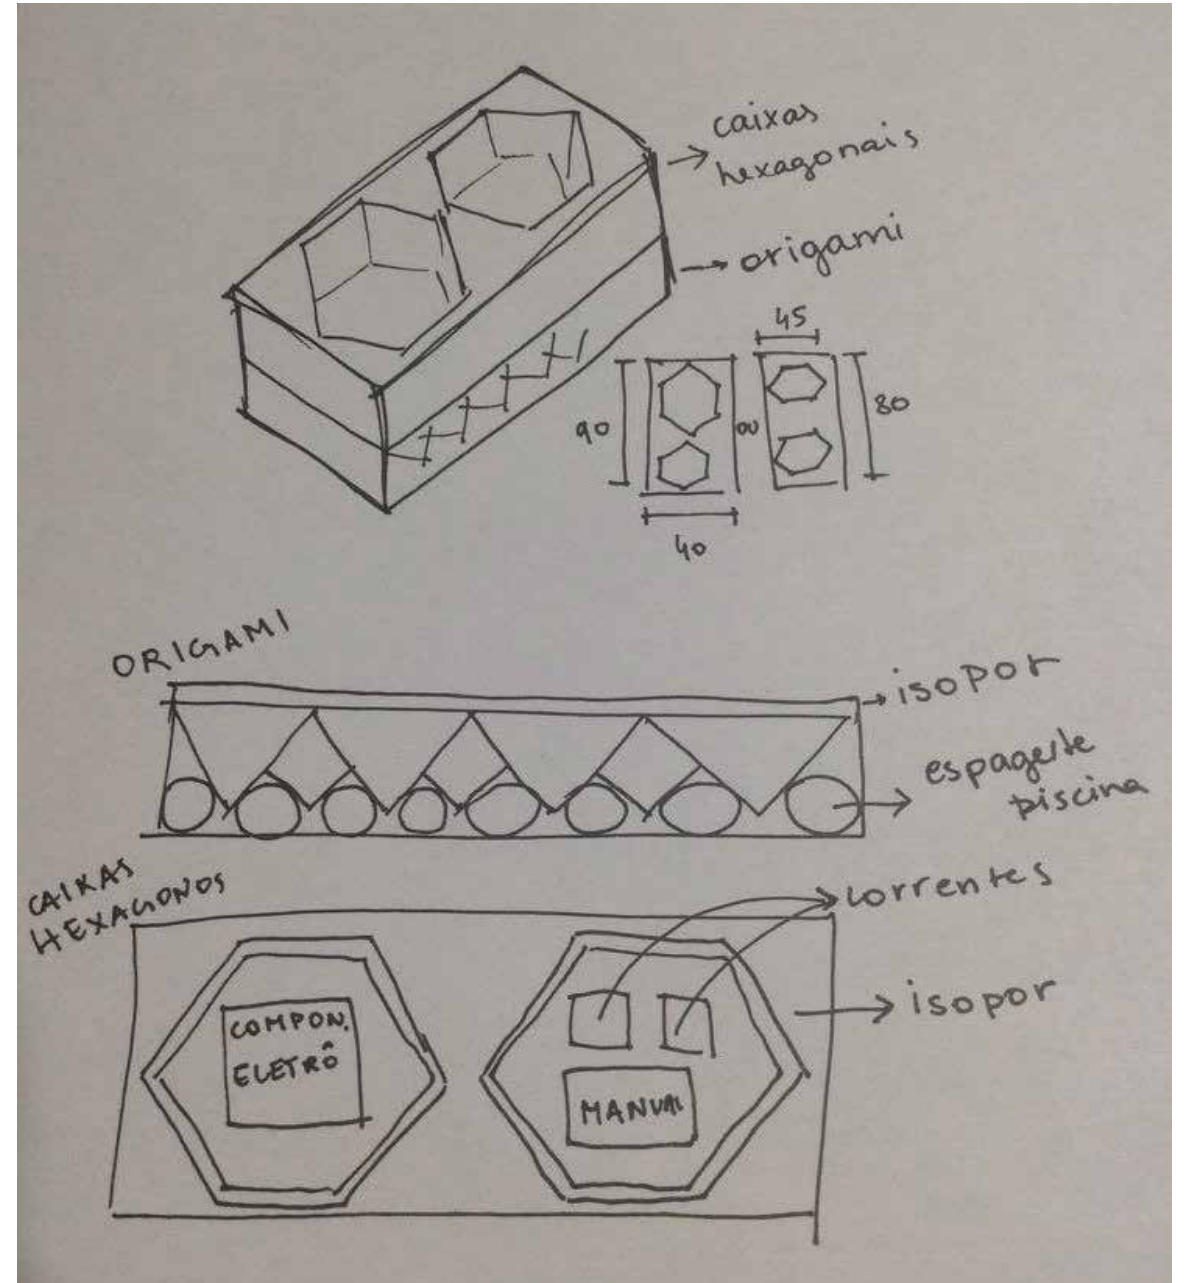 caixas
hexagonais
origami
45
90
ou
80
40
ORIGAMI
isopor
espagete
piscina
CAIXAS
HEXAGONOS
correntes
isopor
COMPON.
ELETRÔ
MANUAL